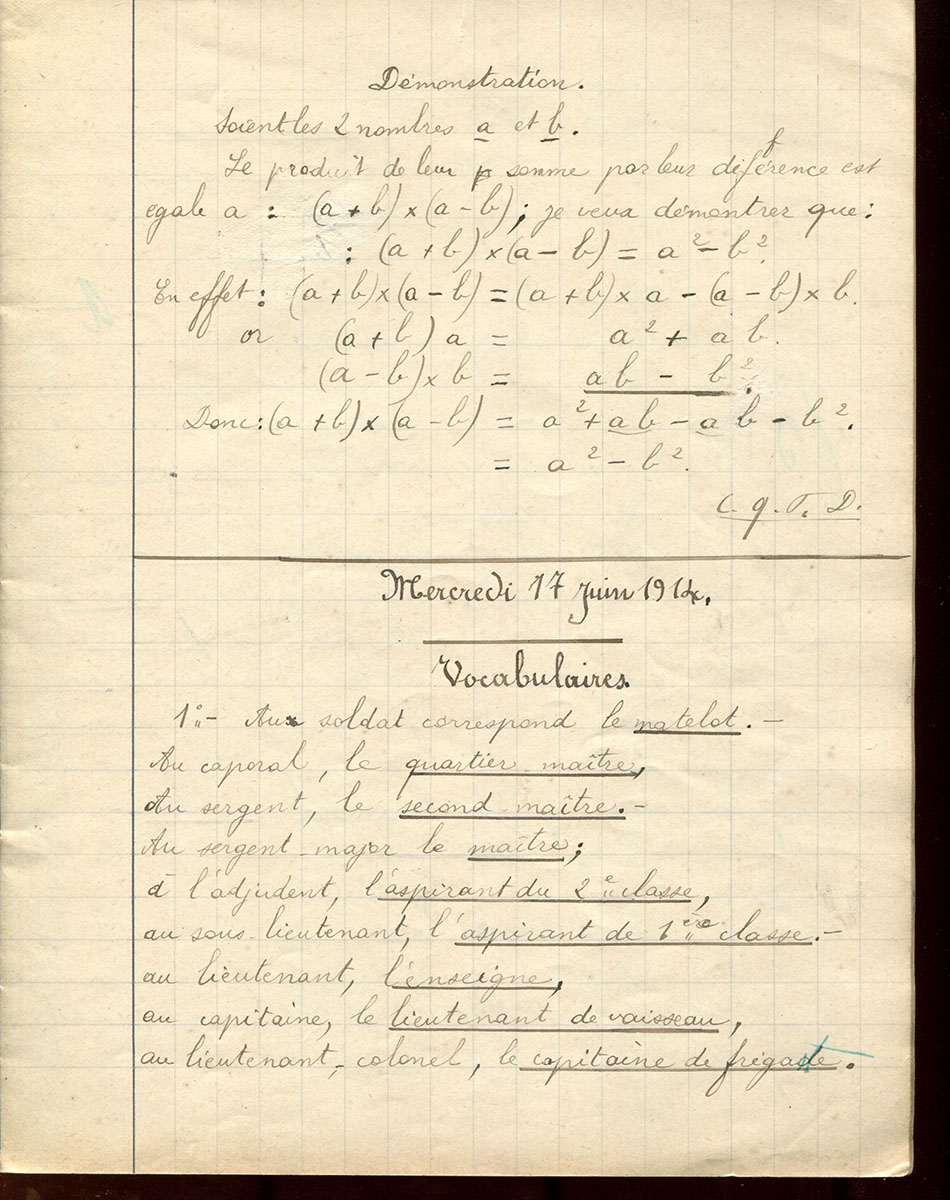 Démonstration.
Soient les 2 nombres a et b.
Le produit de leur somme par leur différence est
egale a : (a + b) × (a - b); je veux démontrer que :
: (a + b) × (a - b) = a² - b².
En effet : (a + b) × (a - b) = (a + b) × a - (a - b) × b.
or (a + b) a = a² + a b.
(a - b) × b = ab - b².
Donc : (a + b) × (a - b) = a² + ab - a b - b².
= a² - b².
C. q. F. D.
Mercredi 17 Juin 1914.
Vocabulaires.
1° - Au soldat correspond le matelot. -
Au caporal, le quartier maître,
Au sergent, le second maître. -
Au sergent-major le maître ;
à l'adjudent, l'aspirant du 2e classe,
au sous-lieutenant, l'aspirant de 1ère classe. -
au lieutenant, l'enseigne,
au capitaine, le lieutenant de vaisseau,
au lieutenant-colonel, le capitaine de frégate.